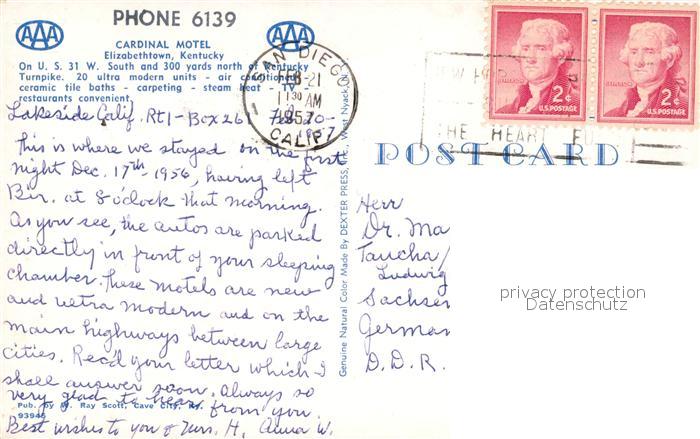 PHONE 6139
AAA
AAA
CARDINAL MOTEL
Elizabethtown, Kentucky
On U. S. 31 W. South and 300 yards north of Kentucky
Turnpike. 20 ultra modern units - air conditioned
ceramic tile baths - carpeting - steam heat - TV -
restaurants convenient.
Lakeside Calif. Rt1-Box 26 Feb 20-
1957
This is where we stayed on the first
night Dec. 17th 1956, having left
Bir. at 8 o'clock that morning.
As you see, the autos are parked
directly in front of your sleeping
chamber. These motels are new
and ultra modern and on the
main highways between large
cities. Rec'd your letter which I
shall answer soon. Always so
very glad to hear from you.
Pub. by W. Ray Scott, Cave City, Ky.
93946
Best wishes to you & Mrs. H. Anna W.
Genuine Natural Color Made By DEXTER PRESS, Inc., West Nyack, N.
SAN DIEGO
FEB 21
11 30 AM
1957
CALIF
THE HEART FU
2¢
U.S. POSTAGE
2¢
U.S. POSTAGE
POST CARD
Herr
Dr. Ma
Taucha/
Ludwig
Sachsen
German
D.D.R.
privacy protection
Datenschutz